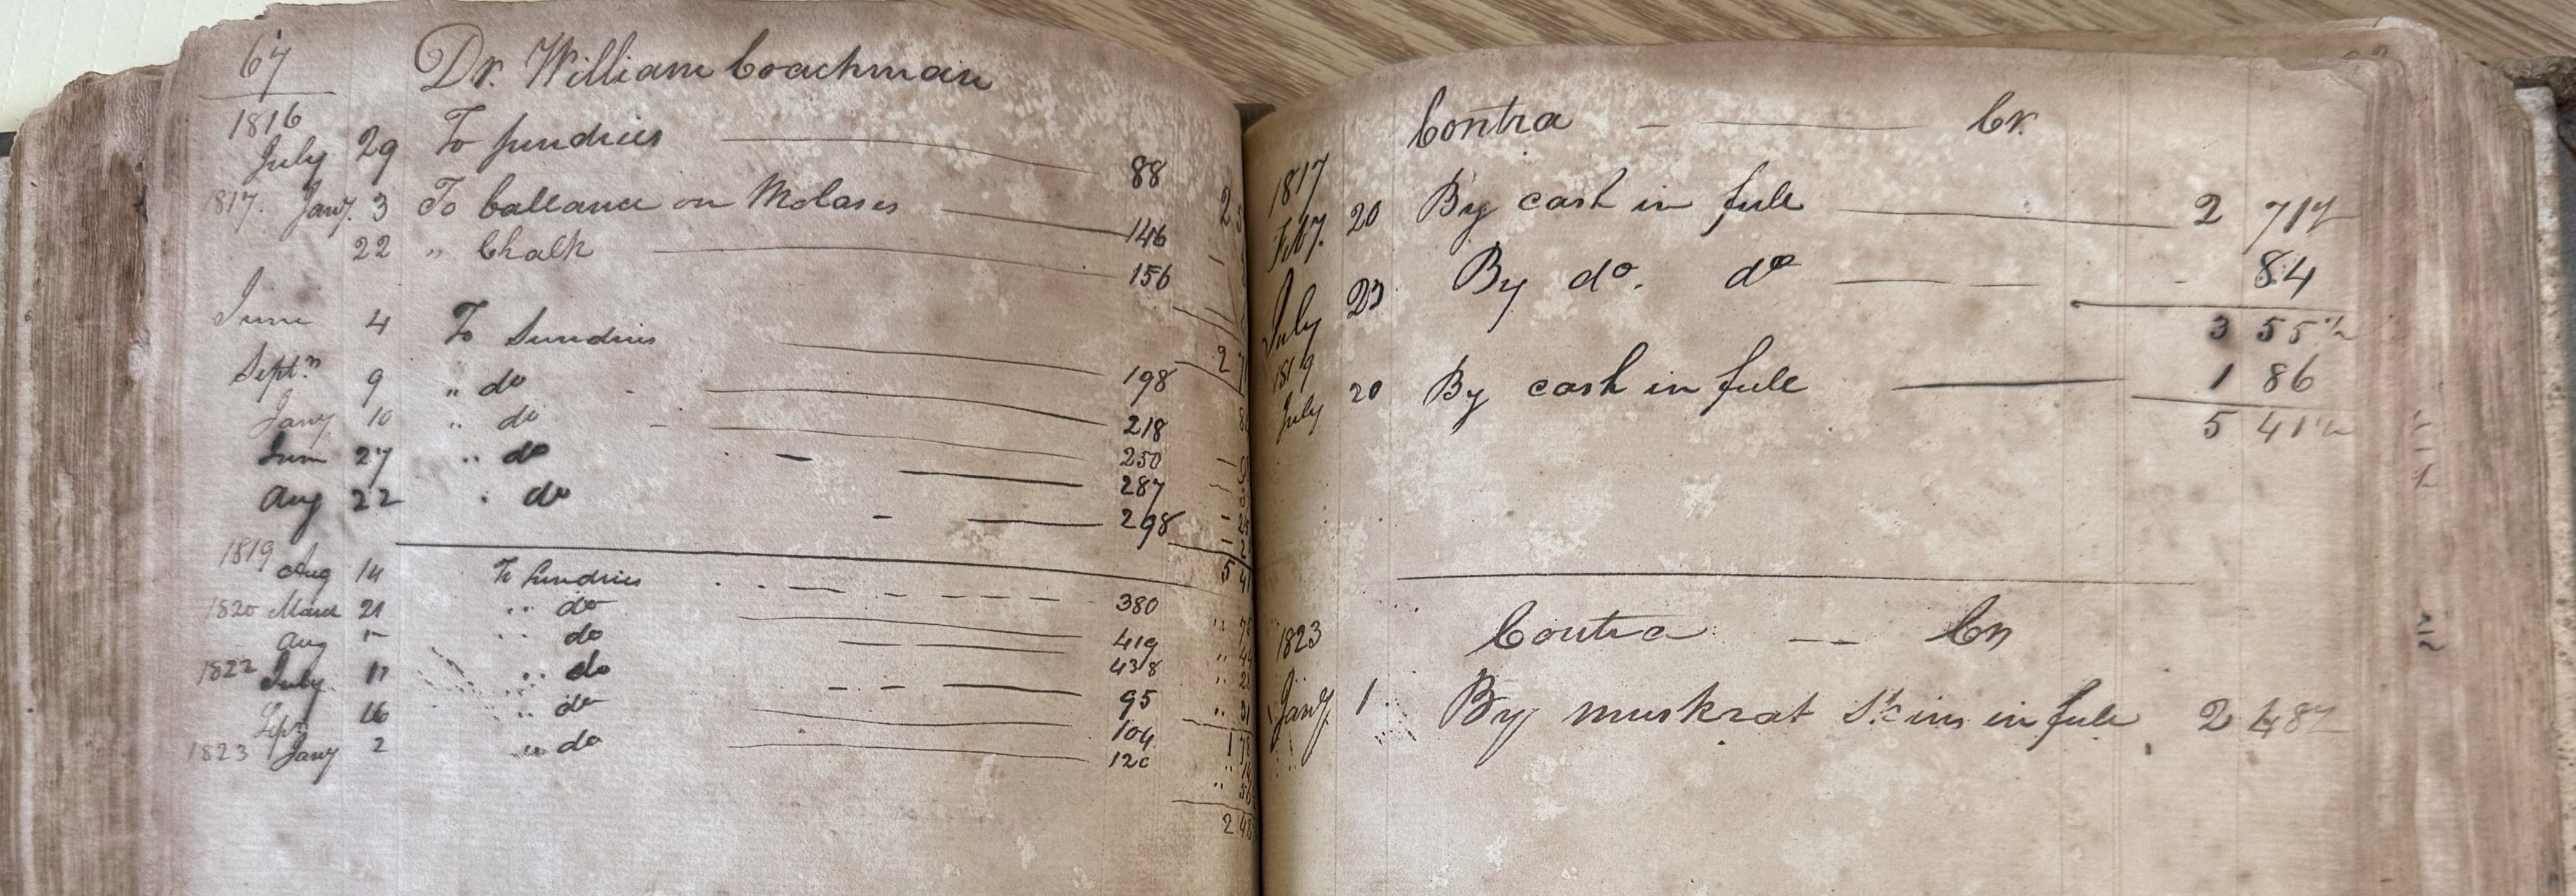 67
Dr. William Coachman
1816
July 29 To sundries 88 2
1817. Jany. 3 To ballance on Molases 146
22 " Chalk 156
2
June 4 To Sundries 198
Sept. 9 " do 218
Jany 10 " do 250
June 27 " do 287
Aug 22 " do 298
5 41
1819 Aug 14 To Sundries 380
1820 March 21 " do 419
Aug " do 438
1822 July 11 " do 95
Sept. 16 " do 104
1823 Jany 2 " do 120
2 48
Contra Cr.
1817
Feby. 20 By cash in full 2 71½
July 23 By do. do 84
3 55½
1819
July 20 By cash in full 1 86
5 41½
1823 Contra Cr
Jany 1 By muskrat Skins in full 2 48½